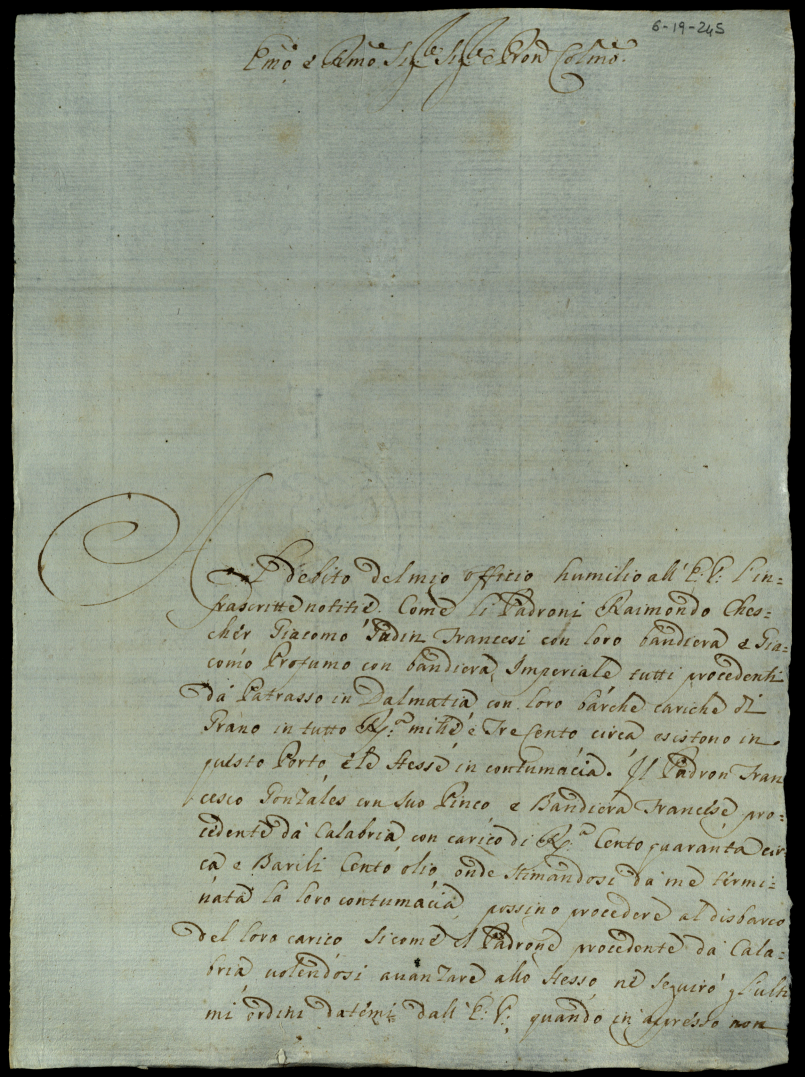 6-19-245
Emo e Rmo Sig.e Sig.e e Pron Colmo.
Al debito del mio officio humilio all' E: V: l'in=
frascritte notitie. Come li Padroni Raimondo Ches=
chér Giacomo Tudin Francesi con loro bandiera e Gia=
como Profumo con bandiera Imperiale tutti procedenti
da Patrasso in Dalmatia con loro barche cariche di
Grano in tutto mille e Tre Cento circa esistono in
questo Porto e le stesse in contumacia. Il Padron Fran
cesco Gonzáles con suo Pinco e Bandiera Francese pro=
cedente da Calabria con carico di Cento quaranta cir=
ca e Barili Cento olio, onde stimandosi da me térmi=
nata la loro contumacia, possino procedere al disbarco
del loro carico, sicome il Padrone procedente da Cala=
bria uolendosi auanzare allo stesso ne seguiró gl'ulti
mi ordini datemi dall' E: V: quando in appresso non